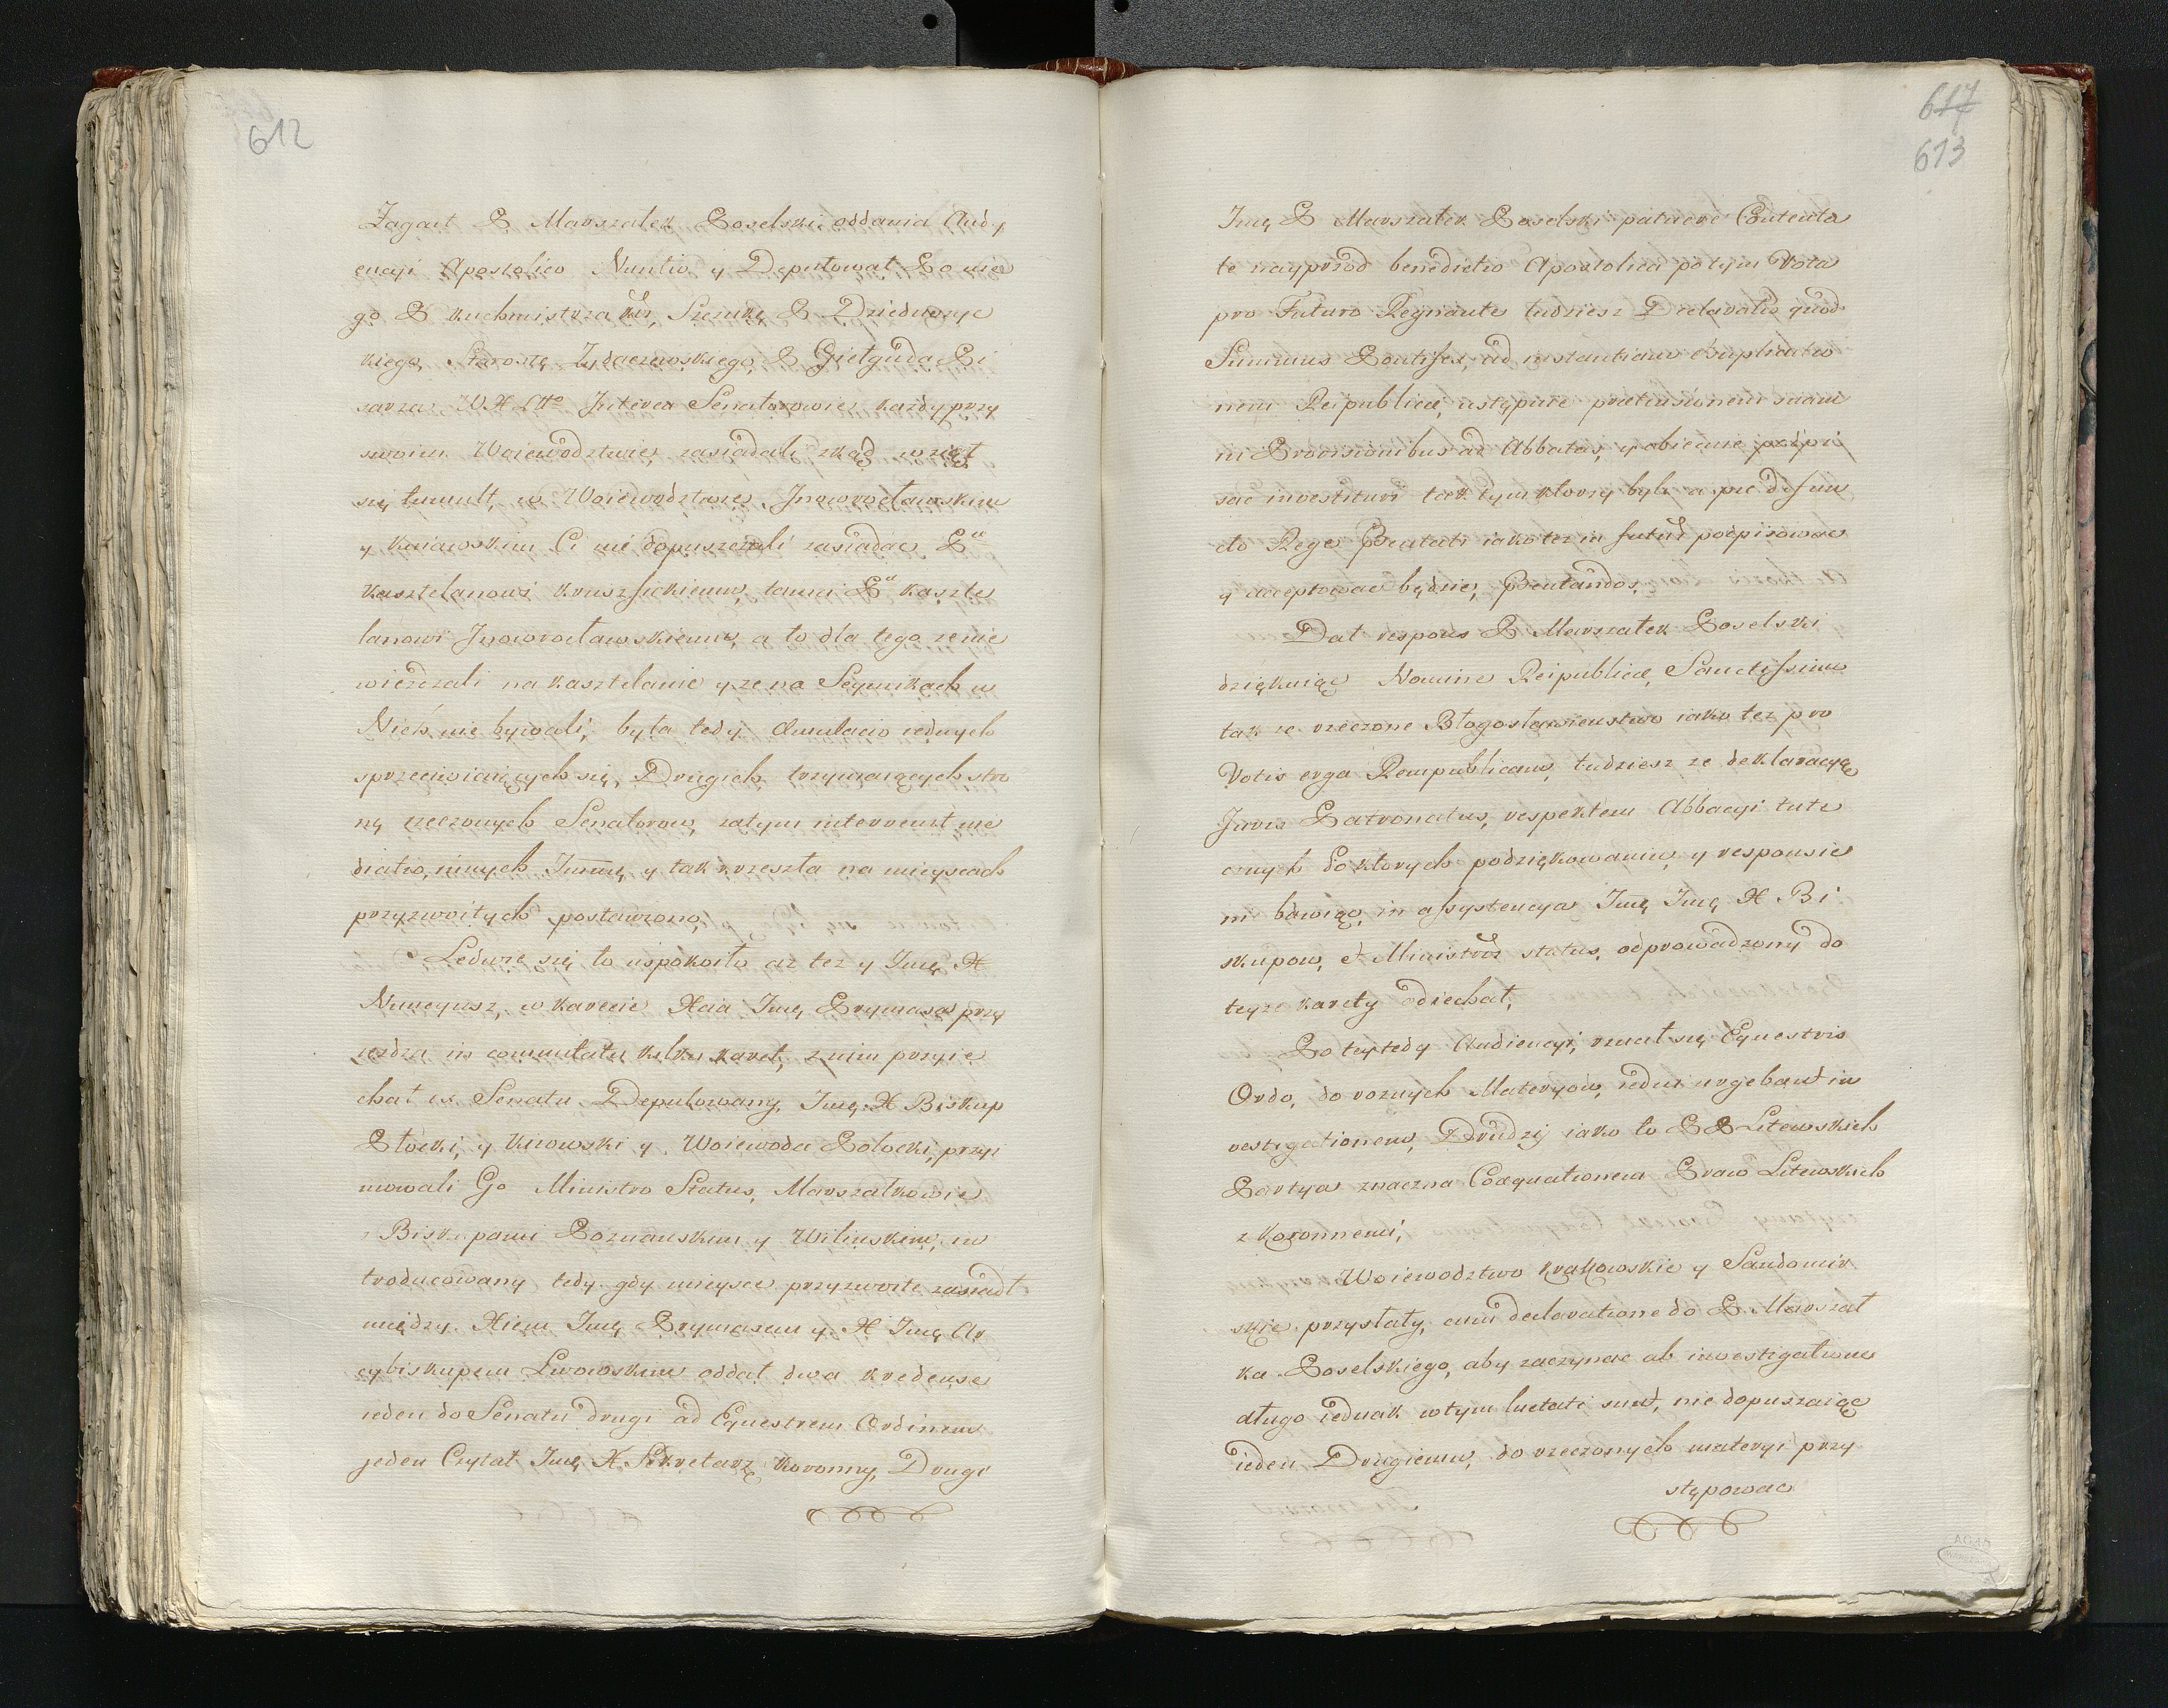 612
Zagaił P Marszałek Poselski oddania Audy
encyi Apostolico Nuntio y Deputował Po nie
go P Kuchmistrza Kor, Szenukę P Dzieduszyc
kiego, Starostę Zydaczewskiego, P Gietguda Pi
sarza W X Ltto Interea Senatorowie każdy przy
swoim Woiewodztwie, zasiadali zkąd wziął
się tumult, w Woiewodztwie, Inowrocławskim
y Kuiawskim Ci nie dopuszczali zasiadac Pu
Kasztelanowi Kruszfickiemu, tamci Pu Kaszte
lanowi Inowrocławskiemu, a to dla tego ze nie
wieżdzali na Kasztelanie y ze na Seymikach w
Nich nie bywali, była tedy Æmulacio iednych
sprzeciwiaiących się, Drugich trzymaiących stro
nę rzeczonych Senatorow, zatym intervenit me
diatio, innych Immę y tak krzesła na mieyscach
przyzwoitych postawiono,
Ledwie się to uspokoiło az tez y Imę X
Nuncyusz, w karecie Xcia Imę Prymasa przy
iezdza in commitatu kilku karet, z nim przyie
chał ex Senatu Deputowany, Imę X Biskup
Płocki, y Kiiowski y Woiewoda Połocki, przyi
mowali Go Ministro Status, Marszałkowie
z Biskupami Poznanskim y Wilenskim, in
troducowany tedy gdy mieysce przyzwoite zasiadł
między Xiem Imę Prymasem y X Imę Ar
cybiskupem Lwowskim oddał dwa kredense
ieden do Senatu drugi ad Equestrem Ordinem
jeden Czytał Imę X Sekretarz Koronny, Drugi
617
613
Imę P Marszałek Poselski patuere Contenta
te nayprzod benedictio Apostolica potym Vota
pro Futuro Regnante tudziesz Declaratio quod
Summus Pontifex, ad instantiam Supplicatio
nem Reipublicæ, ustępuie prætensionem suam
in Provisionibus ad Abbatias, y obiecuie podpi
sac investituri tak tym ktorzy byli a præ defun
cto Rege Præntati iako tez in futur podpisowac
y acceptowac będzie, Præntandos,
Dał respons P Marszałek Poselski
dziękuiąc Nomine Reipublicæ, Sanctissimo
tak ze rzeczone Błogosławienstwo iako tez pro
Votis erga Rempublicam, tudziesz ze deklaracyę
Juris Patronatus, respektem Abbacyi tute
cznych do ktorych podziękowaniu, y responsie
ni bawiąc, in assystencya Imę Imę X Bi
skupow, et Ministror status, odprowadzony do
teyze karety odiechał,
Po tey tedy Audiencyi, rzucił się Equestris
Ordo, do roznych Materyow, iedni urgebant in
vestigationem, Drudzy iako to P P Litewskich
Partya znaczna Coæquationem Praw Litewskich
z Koronnemi,
Woiewodztwo Krakowskie y Sandomir
skie przystały, cum declaratione do P Marszał
ka Poselskiego, aby zaczynac ab investigatione
długo iednak w tym luctati sunt, nie dopuszczaiąc
ieden Drugiemu, do rzeczonych materyi przy
stępowac